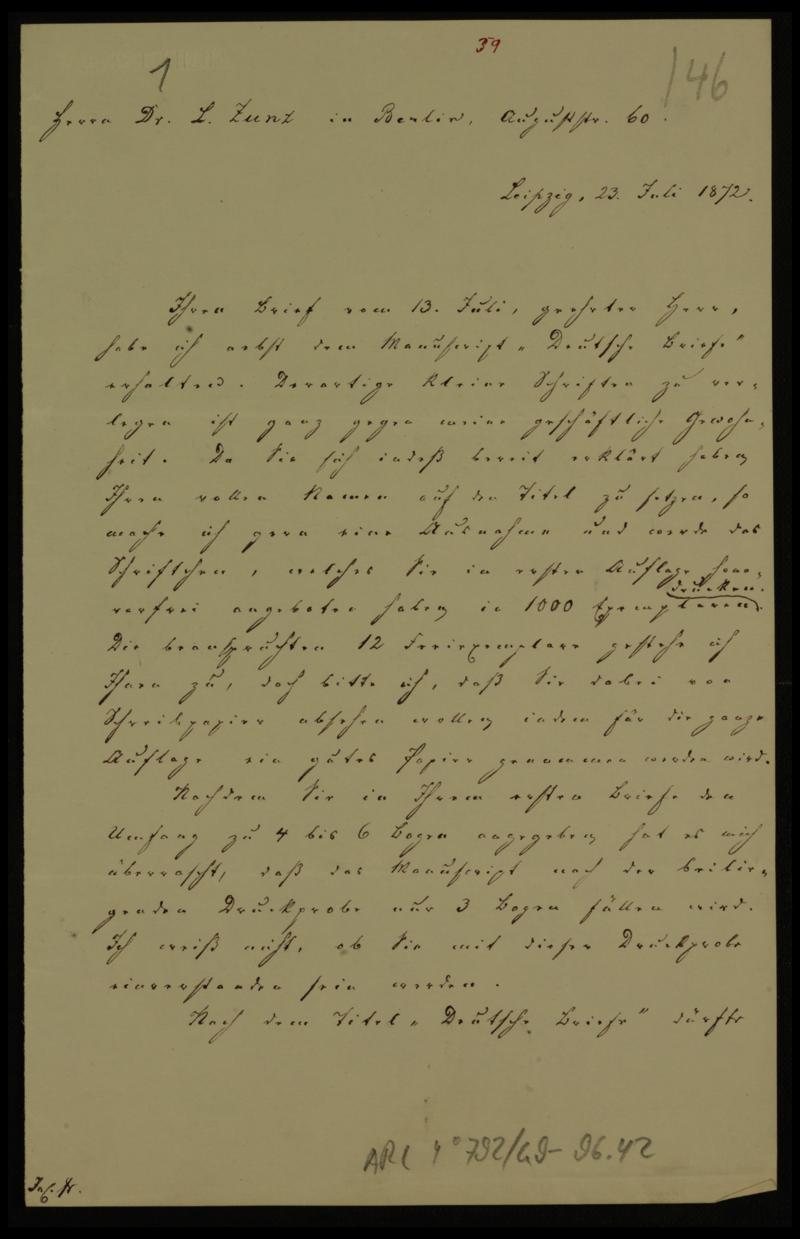 39
1
146
Herrn Dr. L. Zunz in Berlin, Auguststr. 60.
Leipzig, 23. Juli 1872.
Ihren Brief vom 13. Juli, geehrter Herr,
habe ich nebst dem Manuscript „Deutsche Briefe"
erhalten. Derartige kleine Schriften zu ver-
legen ist ganz gegen meine geschäftliche Gewohn-
heit. Da Sie sich indeß bereit erklärt haben
Ihren vollen Namen auf den Titel zu setzen, so
mache ich gern eine Ausnahme und werde das
Schriftchen, welches Sie in erster Auflage hono-
drucken.
rarfrei angeboten haben in 1000 Exemplaren
Die beanspruchten 12 Freiexemplare gestehe ich
Ihnen zu, doch bitte ich, daß Sie dabei von
Schreibpapier absehen wollen indem für die ganze
Auflage ein gutes Papier genommen werden wird.
Nachdem Sie in Ihrem ersten Briefe den
Umfang zu 4 bis 6 Bogen angegeben hat es mich
überrascht, daß das Manuscript nach der beilie-
genden Druckprobe nur 3 Bogen füllen wird.
Ich weiß nicht, ob Sie mit dieser Druckprobe
einverstanden sein werden.
Nach dem Titel „Deutsche Briefe" dürfte
ARC 4° 792/G9-96.42